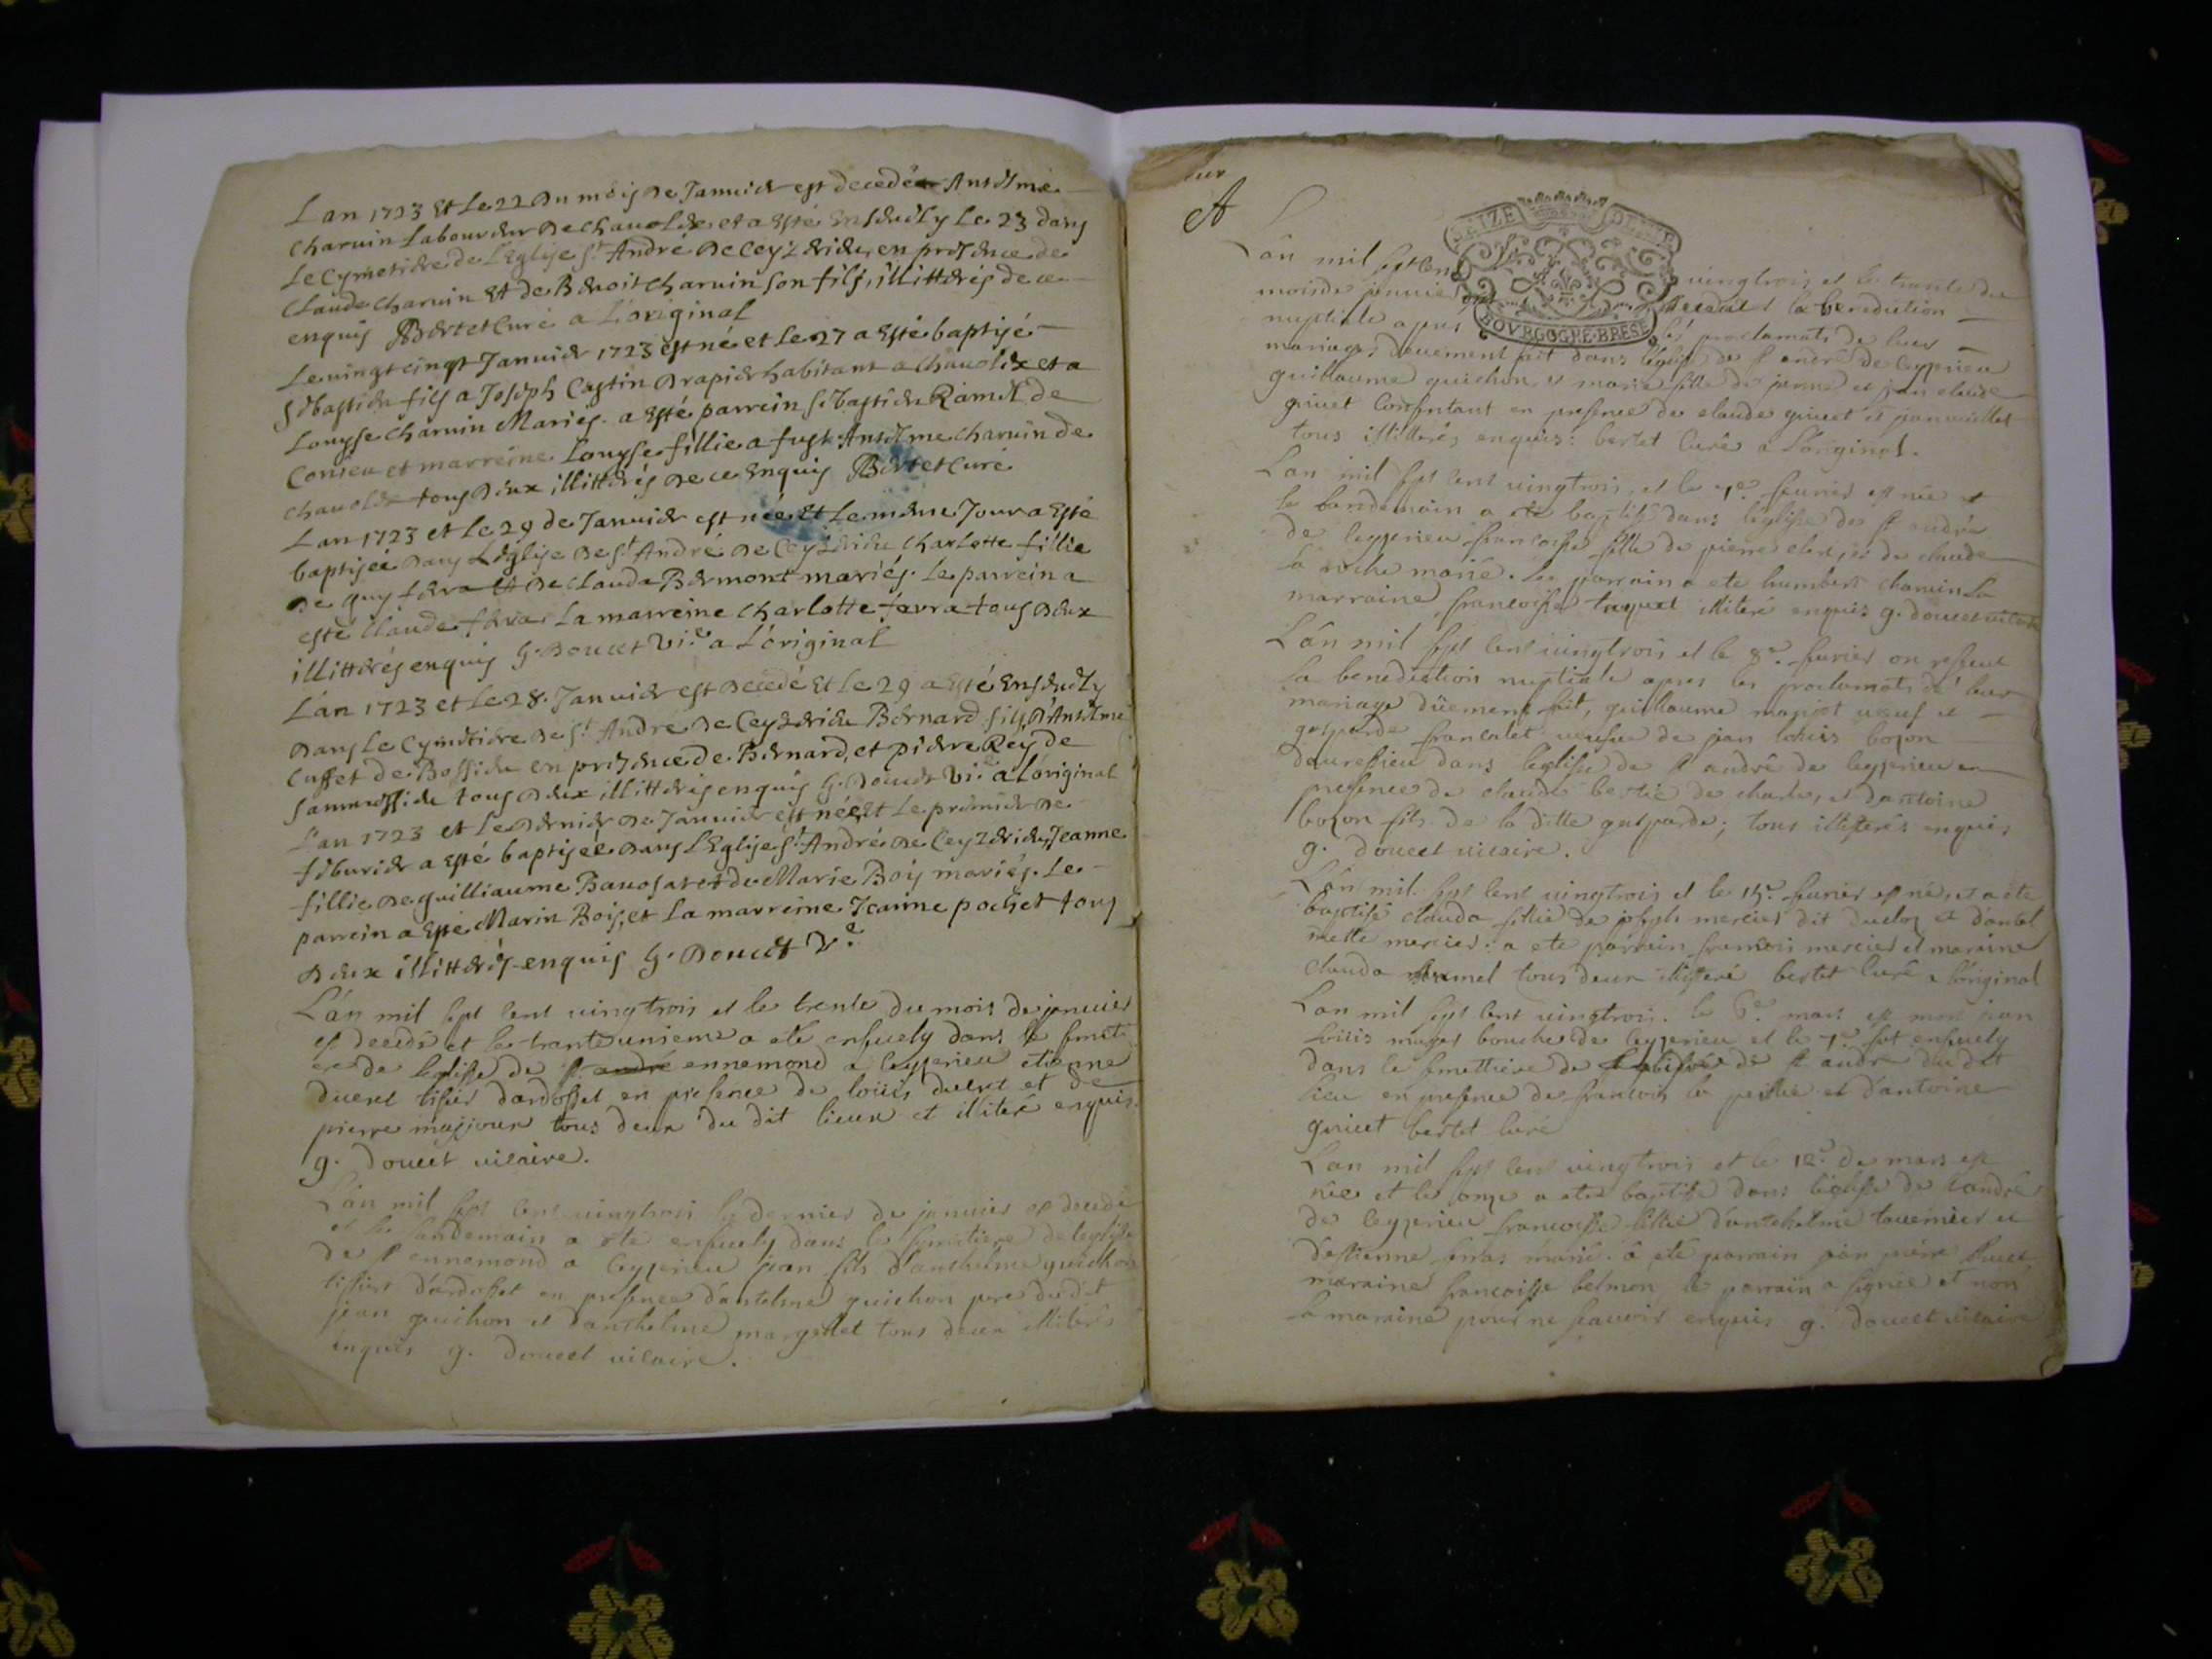 Lan 1723 Et Le 22 Du mois De Januier est decedé Antelme
Charuin Labourdeur De chauolex et a Esté Ensduely Le 23 dans
Le Cymetidre de L'Eglise St André De Ceyzeridu, en presence de
Claude Charuin Et de Benoit Charuin son fils, illitterés de ce
enquis Bertet Curé a L'original
Le uingt cinqt Januier 1723 est né et Le 27 a Esté baptisé
Sebastien fils a Joseph Castin Drapier habitant a Chauolex et a
Louyse charuin Mariés. a Esté parrein Sebastien Ramel de
Conieu et marreine Louyse fillie a fust Antelme charuin de
chauolex tous Deux illitterés De ce Enquis Bertet Curé
Lan 1723 et Le 29 de Januier est née Et Le meme Jour a Esté
baptiseé Dans L'Eglise De St André De Ceyzeridu Charlotte fillie
De guy fera De Clauda Bermont mariés. Le parrein a
esté Claude fera La marreine Charlotte favra tous Deux
illitterés enquis G. Doucet Vi.e a L'original
L'an 1723 et Le 28. Januier est Decedé Et Le 29 a Esté Ensduely
Dans Le Cymetidre De St André De Ceyzeridu Bernard fils D'Antelme
Cusset de Bossieu en presence de Bernard, et pierre Rey de
tous Deux illitterés enquis G. Doucet Vi.e a L'original
L'an 1723 et Le Dernier De Januier est née Et Le premier De
feburier a Esté baptisée Dans L'Eglise St André De Ceyzeridu, Jeanne
fillie De guilliaume Banosat et de Marie Bois mariés. Le
parrein a Esté Marin Bois, et La marreine Jeanne pochet tous
Deux illitterés enquis G. Doucet V.e
L'an mil sept cent uingtrois et le trente du mois de januier
est decedé et le trante unieme a ete ensuely dans le simit
ere de leglisse de st andré ennemond a ceyzerieu etienne
ducret tisier dardosset en presence de loüis ducret et de
pierre majjour tous deux du dit lieux et illiteré enquis
g. doucet uicaire.
L'an mil sept cent uingtrois le dernier de januier est decedé
et le landemain a ete ensuely dans le simitiere de leglise
de st ennemond a ceyzerieu jean fils d'anthelme guichon
tissier dardosset en presence d'antelme guichon pere dudit
jean guichon et d'anthelme margottet tous deux illiterés
enquis g. doucet uicaire.
A
GAIZE DENIE
BOVRGOGNE·BRESE
L'an mil sept cent uingtrois et le trante du
mois de januier ont receu la benediction
nuptiale apres les proclamats de leur
mariages deuement fait dans l'eglise de st andré de ceyzerieu
guillaume guichon et marie fille de et jean claude
griuet consentant en presence de claude griuet et
tous illitterés enquis: bertet curé a L'original.
Lan mil sept cent uingtrois, et le 7.e feurier est née et
le landemain a ete baptisé dans l'eglisse de st andrée
de ceyzerieu francoisse fille de pierre et de claude
la roche marié. le parrain a ete humbert charuin La
marraine francoisse illiteré enquis g. doucet uicaire
L'an mil sept cent uingtrois et le 8.e feurier on resseu
la benediction nuptiale apres les proclamats de leur
mariage düement fait, guillaume uoeuf et
gasparde francalet ueufue de jean loüis bozon
dauressieu dans l'eglisse de st andré de ceyzerieu en
presence de claude bertié de charle, et dantoine
bozon fils de la ditte gasparde; tous illitterés enquis
g. doucet uicaire.
L'an mil sept cent uingtrois et le 15.e feurier est né, et a ete
baptisé clauda fillie de joseph mercier dit ducloz et dantel
mette mercier: a ete parrain francois mercier et maraine
clauda tous deux illiteré bertet curé a l'original
Lan mil sept cent uingtrois. le 6.e mars est mort jean
loüis bouche de ceyzerieu et le 7.e fut ensuely
dans le simettiere de leglisse de st andré du dit
lieu en presence de francois et d'antoine
griuet bertet curé
Lan mil sept cent uingtrois et le 10.e de mars est
née et le onze a ete baptisse dans leglisse de st andré
de ceyzerieu francoisse fillie d'anthelme tauernier et
destienne marié. a ete parrain jean pierre
maraine francoisse belmon, le parrain a signée et non
la maraine pour ne scauoir enquis g. doucet uicaire